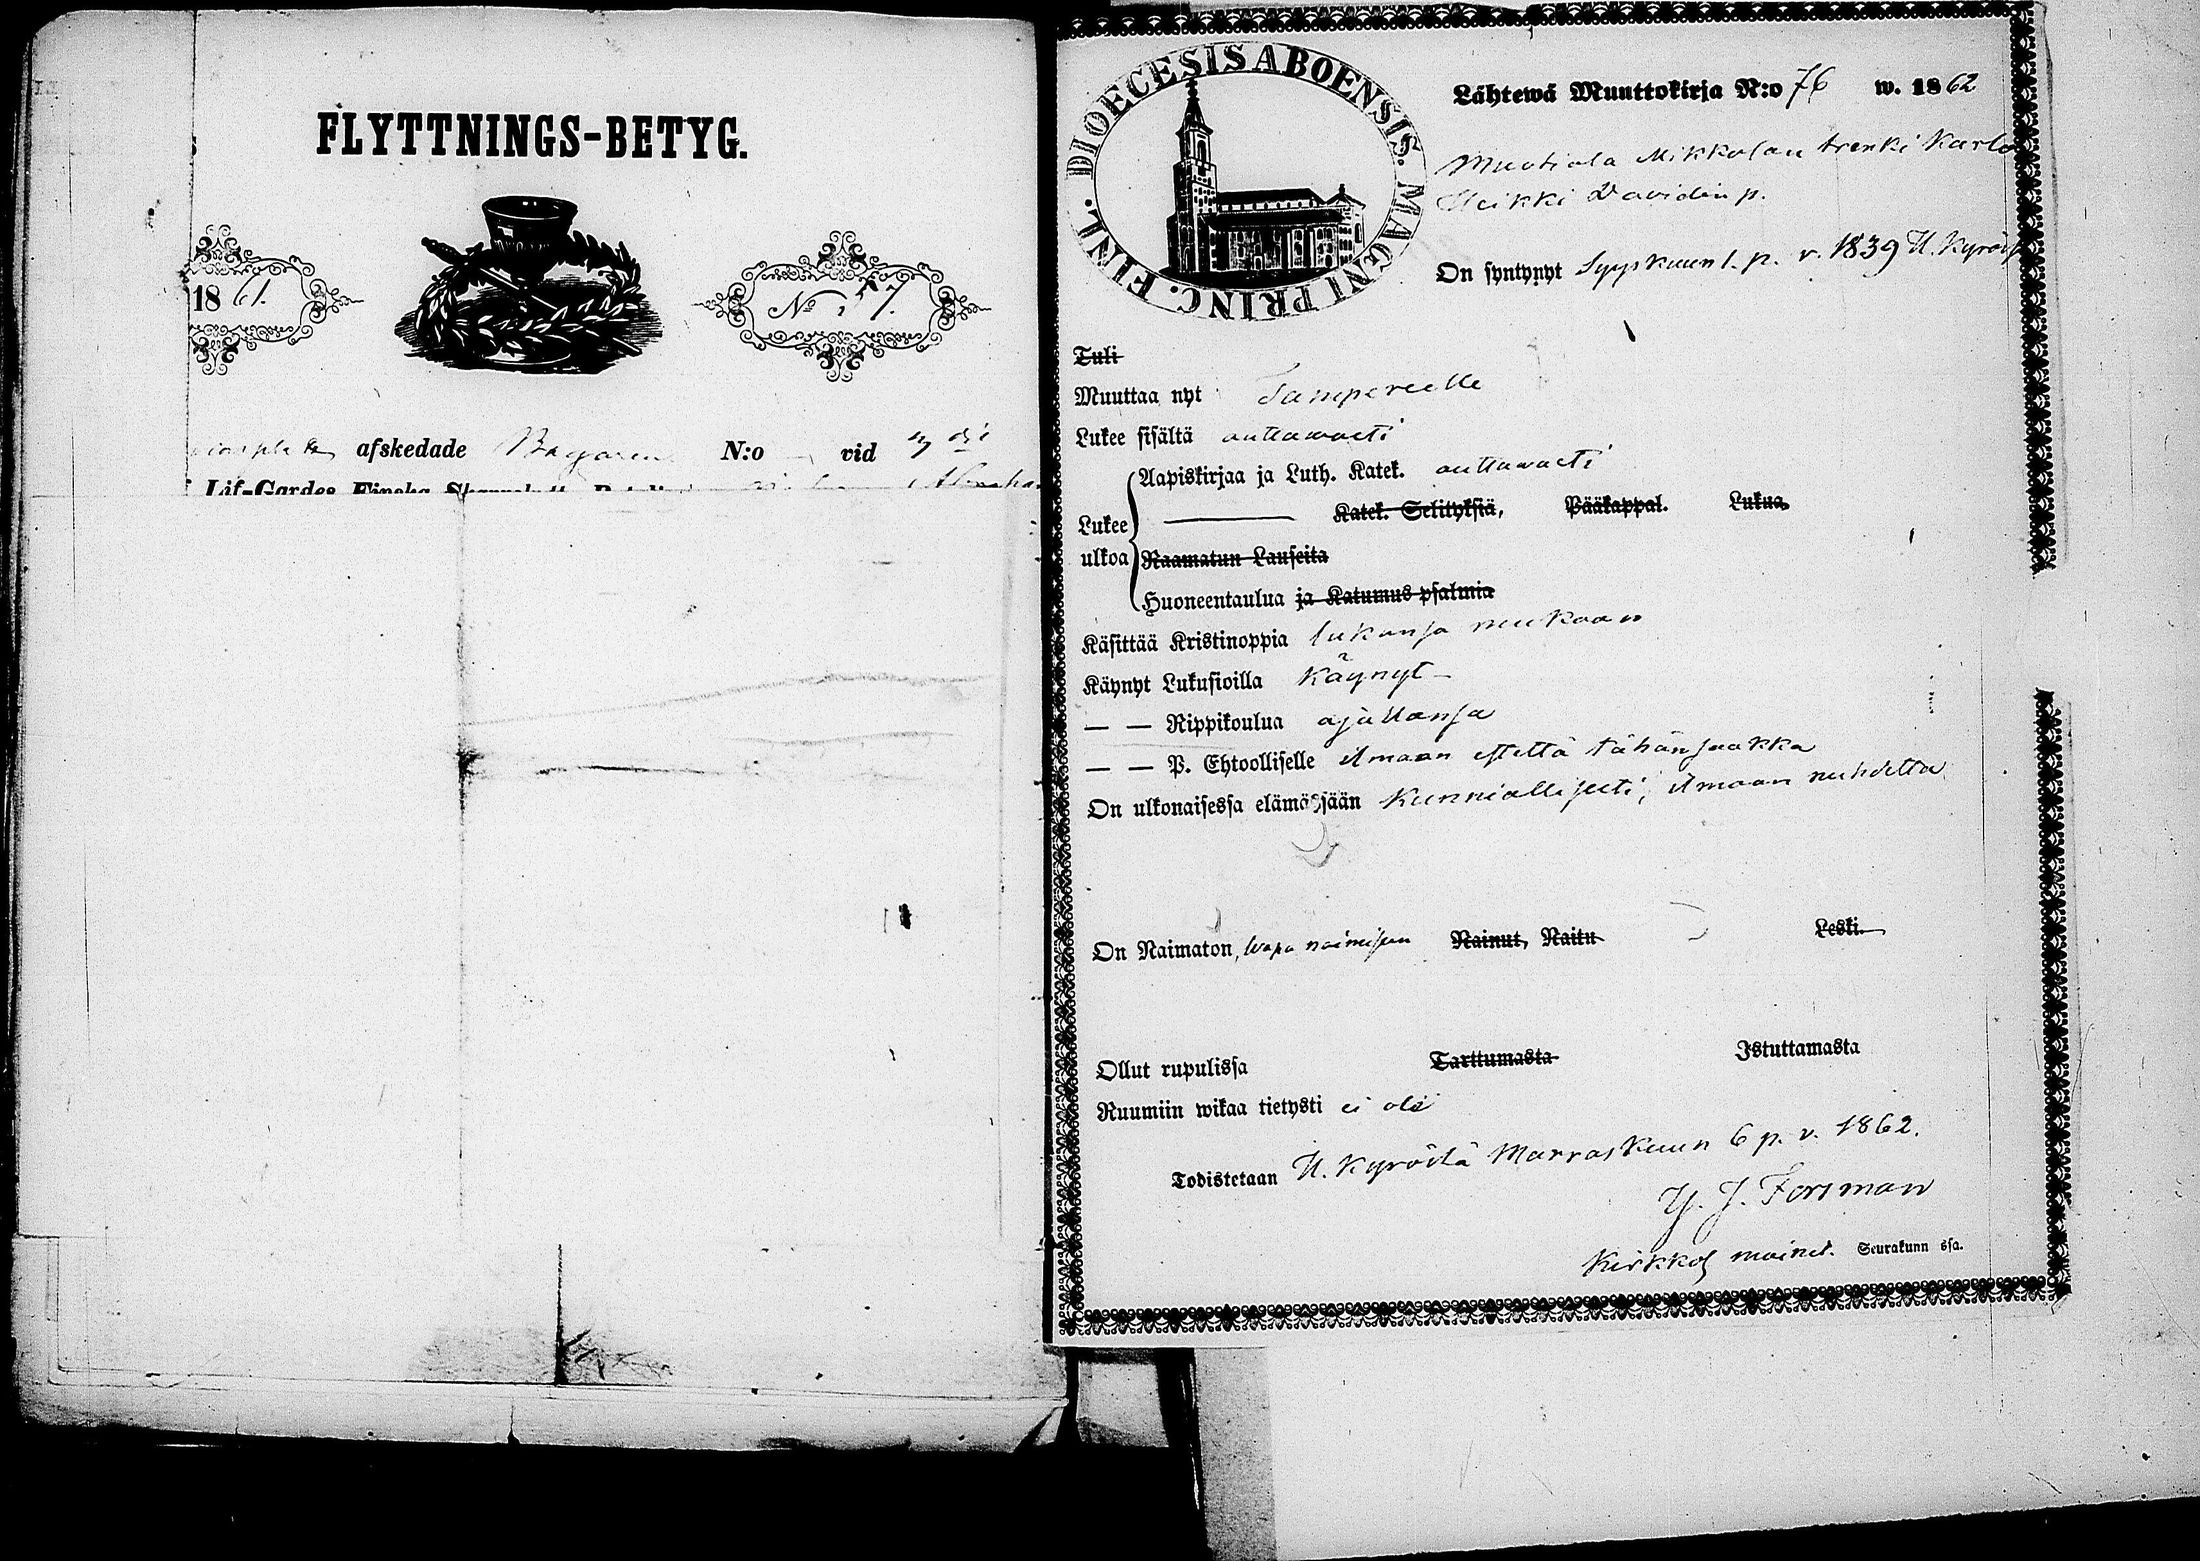 FLYTTNINGS-BETYG.
1861.
No 57.
afskedade N:o vid
Lif-Gardes Finska
DIOECESIS ABOENSIS. MAGNI PRINC. FINL.
Lähtewä Muuttokirja N:o 76 w. 1862
Muotiala Mikkolan trenki Karlo
Heikki Davidin p.
On syntynyt Syyskuun 1. p. v. 1839 H. Kyrös
Tuli
Muuttaa nyt Tampereelle
Lukee sisältä auttawasti
Aapiskirjaa ja Luth. Katek. auttawasti
Lukee ulkoa
Katek. Selityksiä, Pääkappal. Lukua,
Raamatun Lauseita
Huoneentaulua ja Katumus psalmia
Käsittää Kristinoppia lukunsa mukaan
Käynyt Lukusioilla Käynyt
— — Rippikoulua ajallansa
— — P. Ehtoolliselle ilmaan estettä tähänsaakka
On ulkonaisessa elämässään Kunniallisesti, ilmaan nuhdetta
On Naimaton, wapa naimisen Nainut, Naitu Leski.
Ollut rupulissa Tarttumasta Istuttamasta
Ruumiin wikaa tietysti ei ole
Todistetaan H. Kyröstä Marraskuun 6 p. v. 1862.
Y. J. Forsman
Kirkkoh Seurakunn ssa.